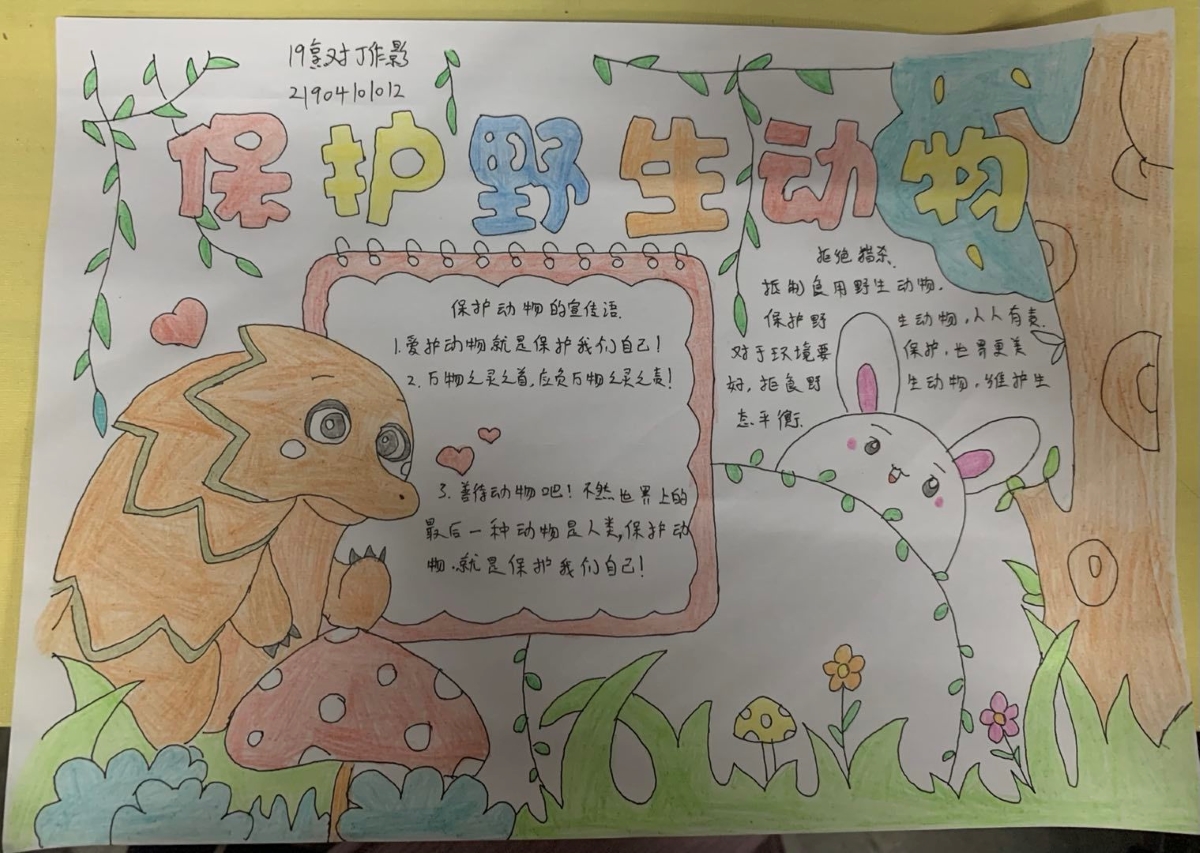 对丁作影
21904101012
保护野生动物
保护动物的宣传语.
1.爱护动物就是保护我们自己!
2.万物之灵之首,应负万物之灵之责!
3.善待动物吧!不然世界上的
最后一种动物是人类,保护动
物.就是保护我们自己!
拒绝猎杀.
抵制食用野生动物.
保护野生动物,人人有责.
对于环境要保护,世界更美
好,拒食野生动物,维护生
态平衡.